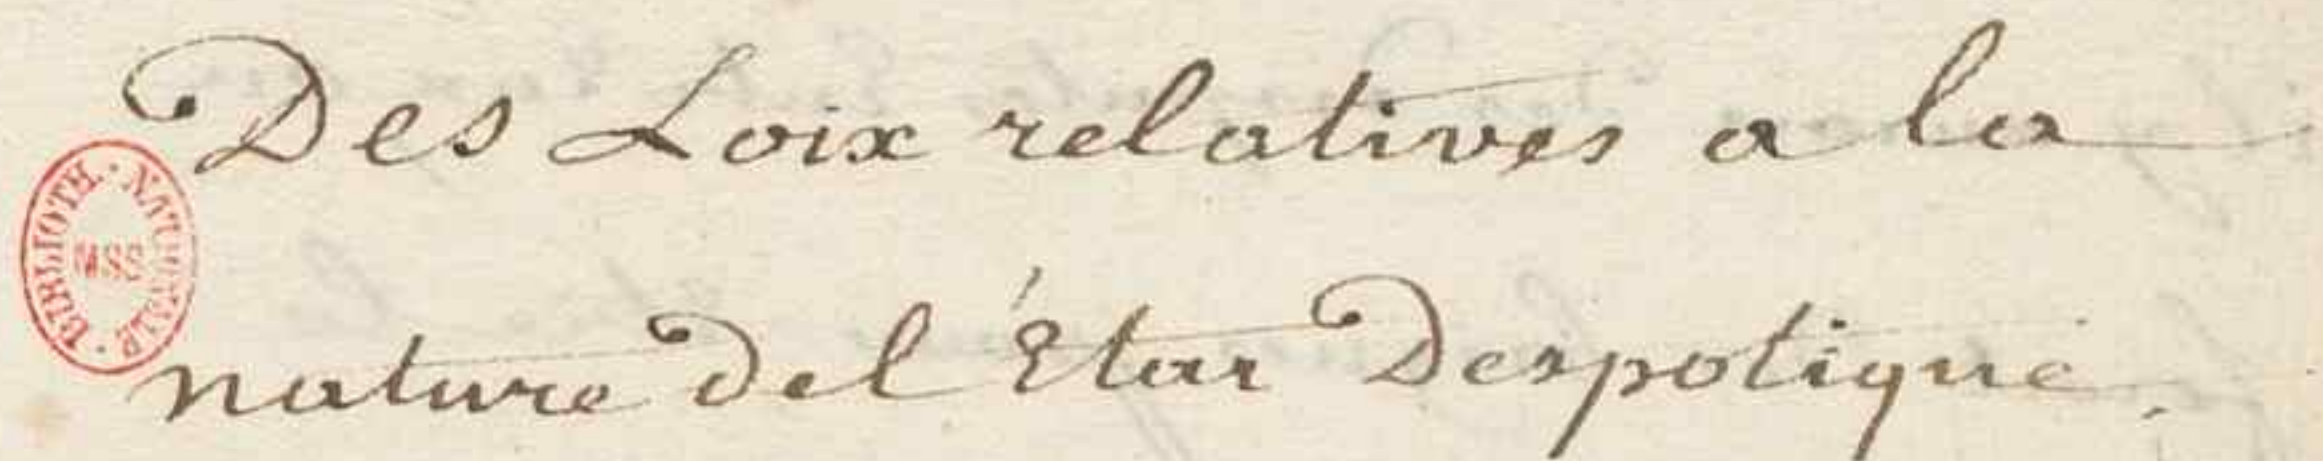 Des Loix relatives a la
nature del'État Despotique.
BIBLIOTH. NATIONALE
MSS